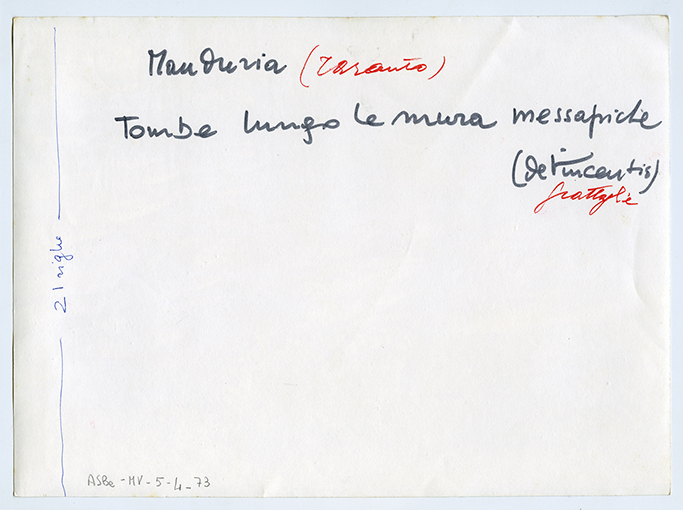 Manduria (Taranto)
Tombe lungo le mura messapiche
(De Vincentis)
Grottaglie
21 righe
ASBa - MV - 5 - 4 - 73